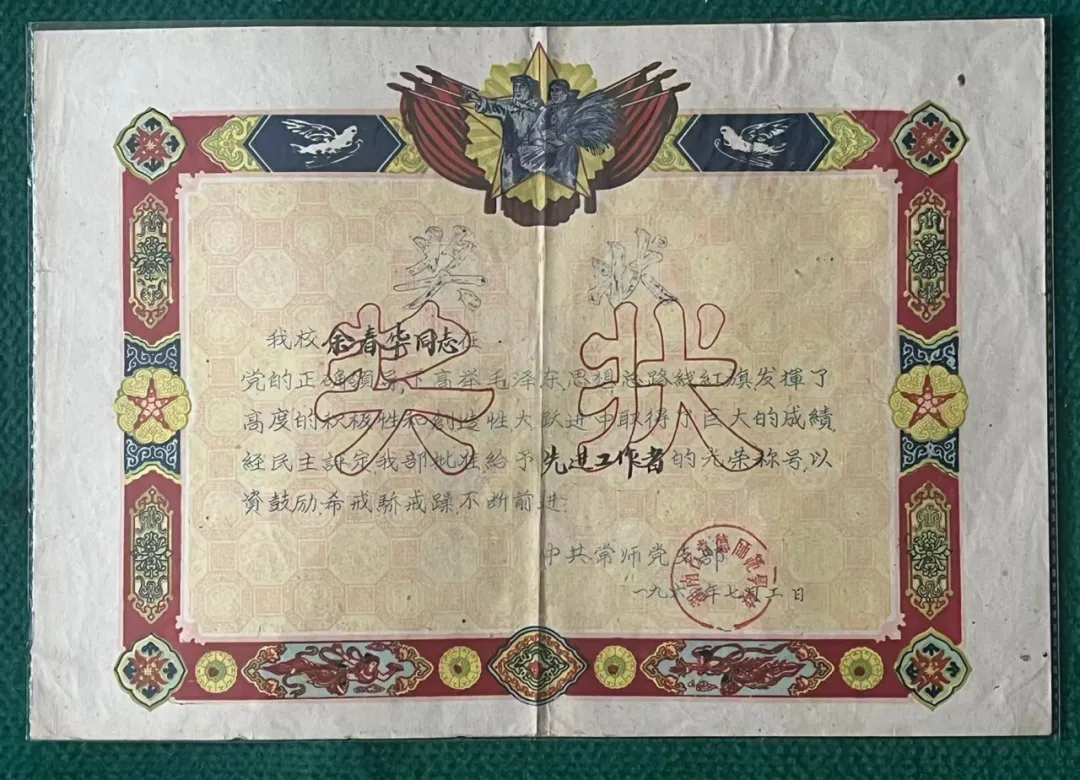 奖 状
奖 状
我校余春华同志在
党的正确领导下高举毛泽东思想总路线红旗发揮了
高度的积极性和創造性大跃进中取得了巨大的成績,
経民主評定我部批准給予先进工作者的光荣称号,以
資鼓励,希戒驕戒躁,不断前进.
中共常师党支部
一九六 年七月 日
湖南 常德师范学校